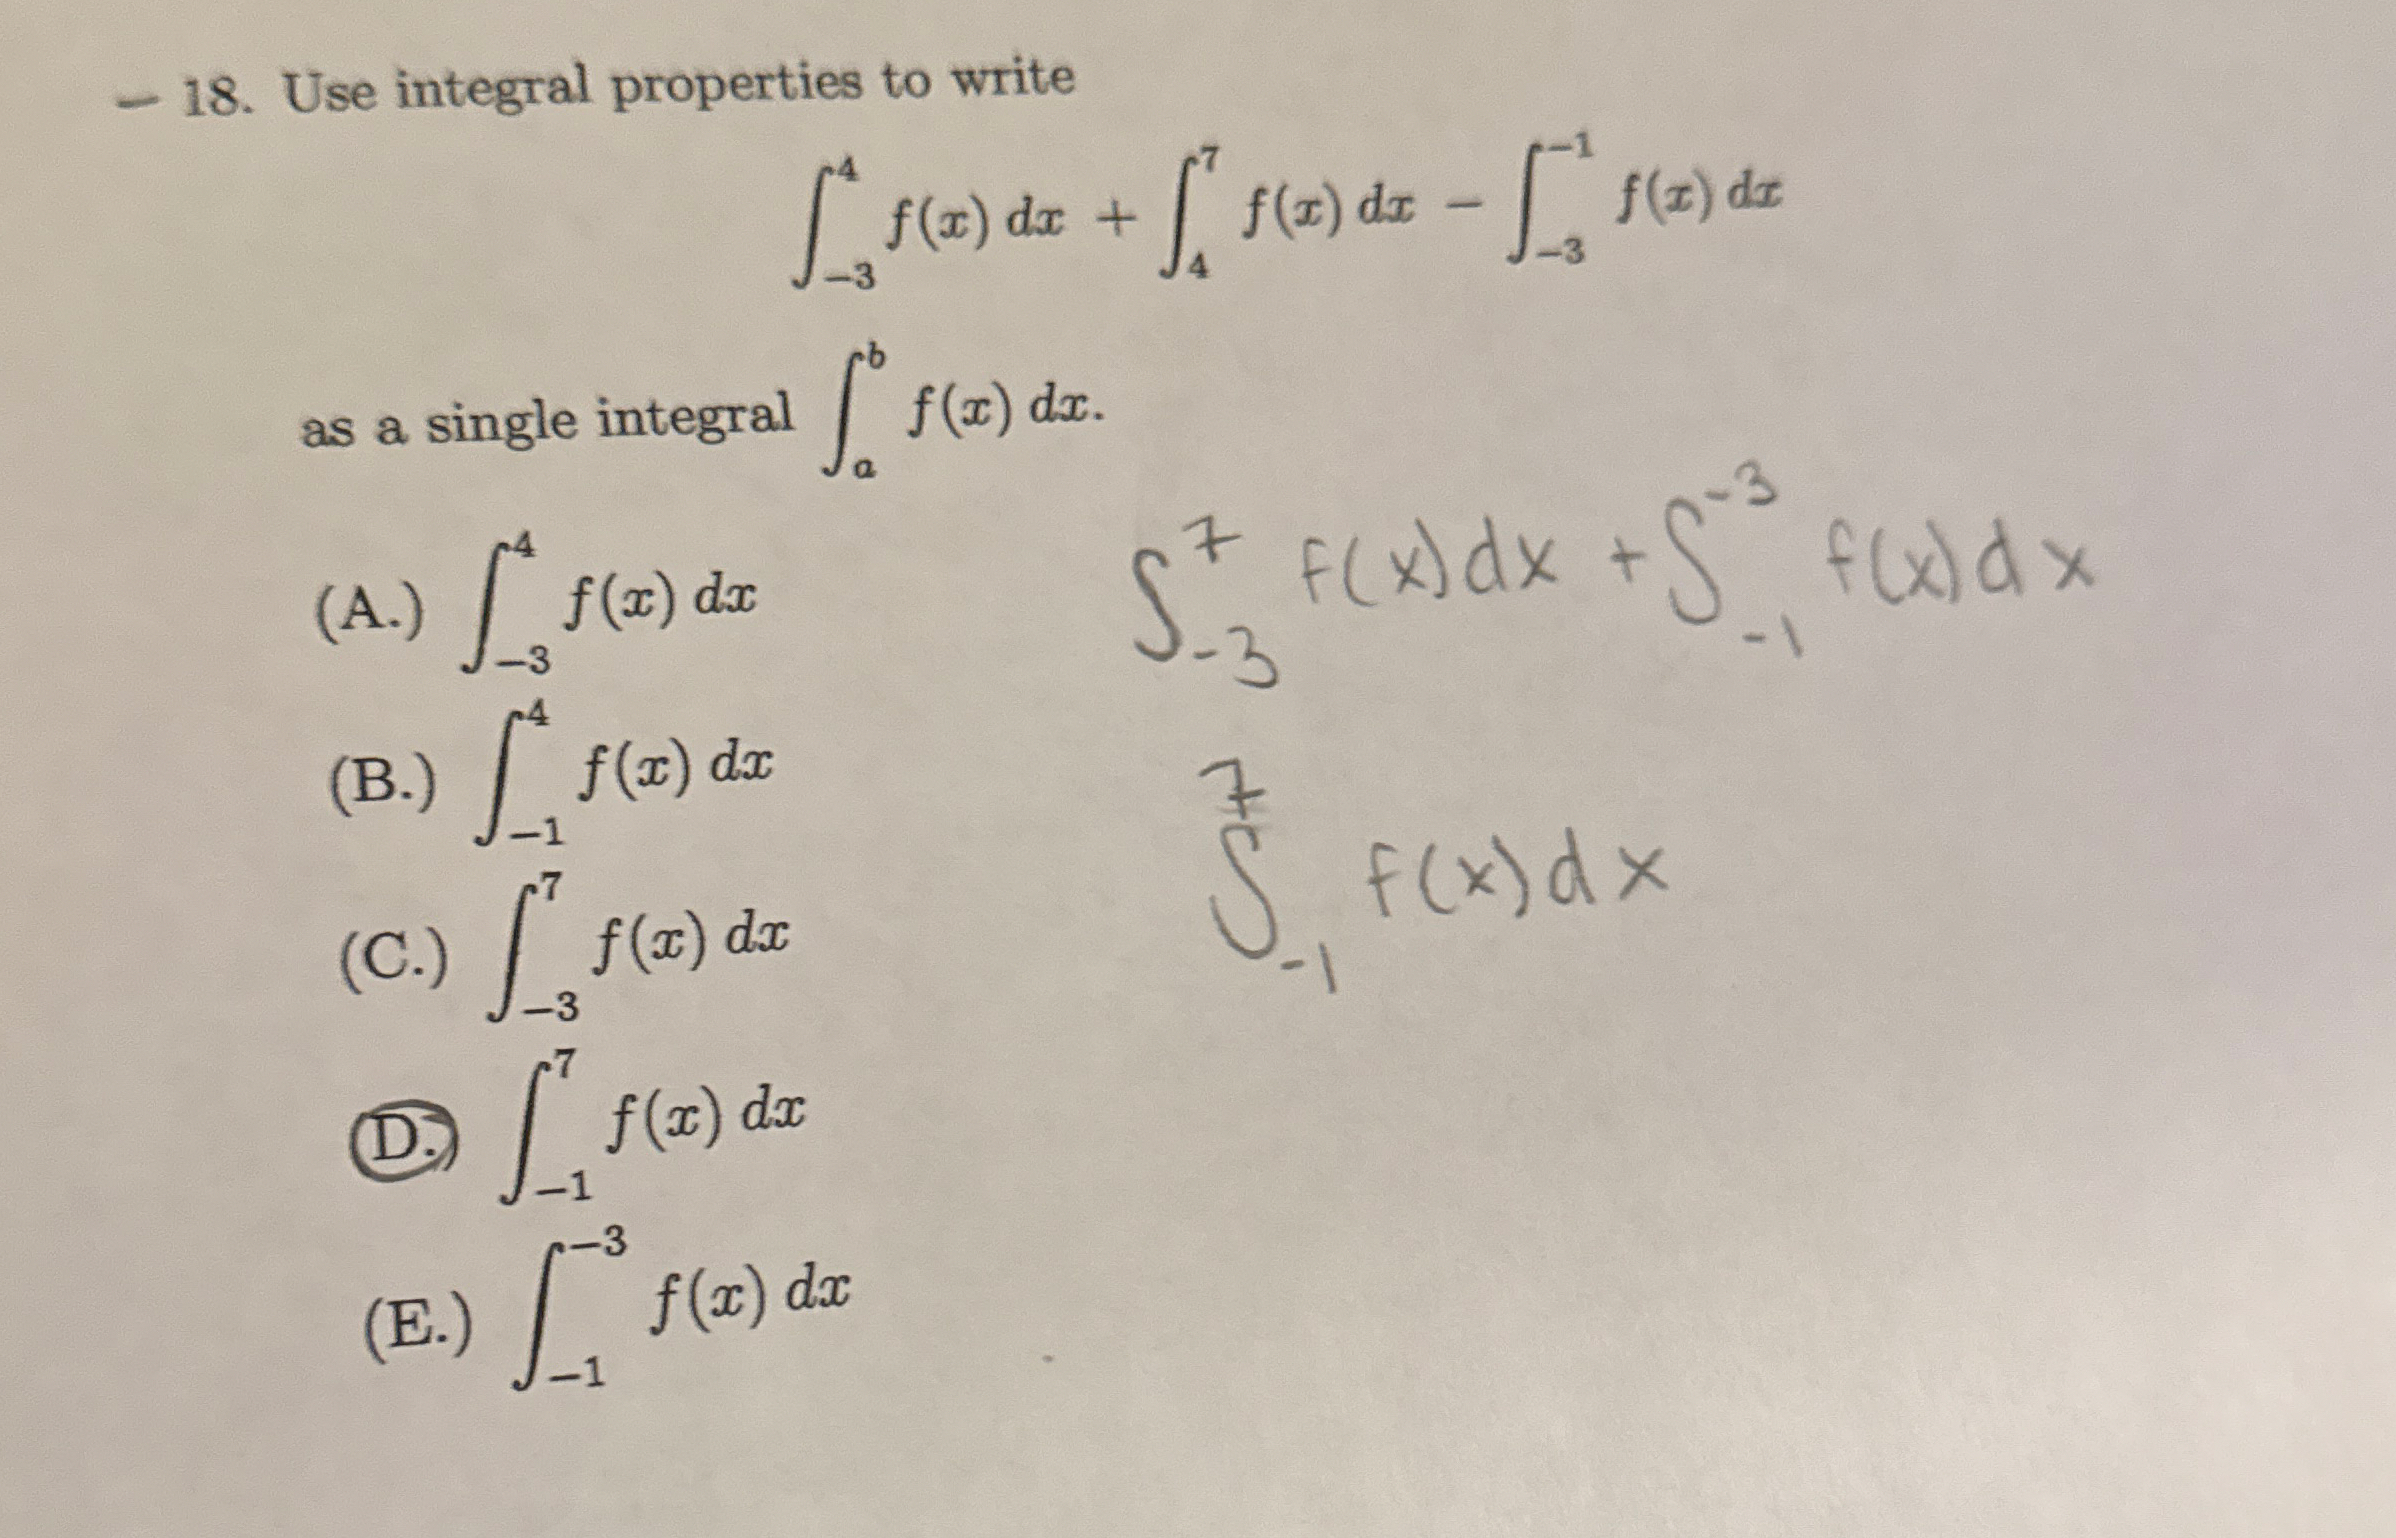 — 18. Use integral properties to write
∫_{-3}^{4} f(x) dx + ∫_{4}^{7} f(x) dx − ∫_{-3}^{-1} f(x) dx
as a single integral ∫_{a}^{b} f(x) dx.
∫_{-3}^{7} f(x)dx + ∫_{-1}^{-3} f(x)dx
∫_{-1}^{7} f(x)dx
(A.) ∫_{-3}^{4} f(x) dx
(B.) ∫_{-1}^{4} f(x) dx
(C.) ∫_{-3}^{7} f(x) dx
(D.) ∫_{-1}^{7} f(x) dx
(E.) ∫_{-1}^{-3} f(x) dx